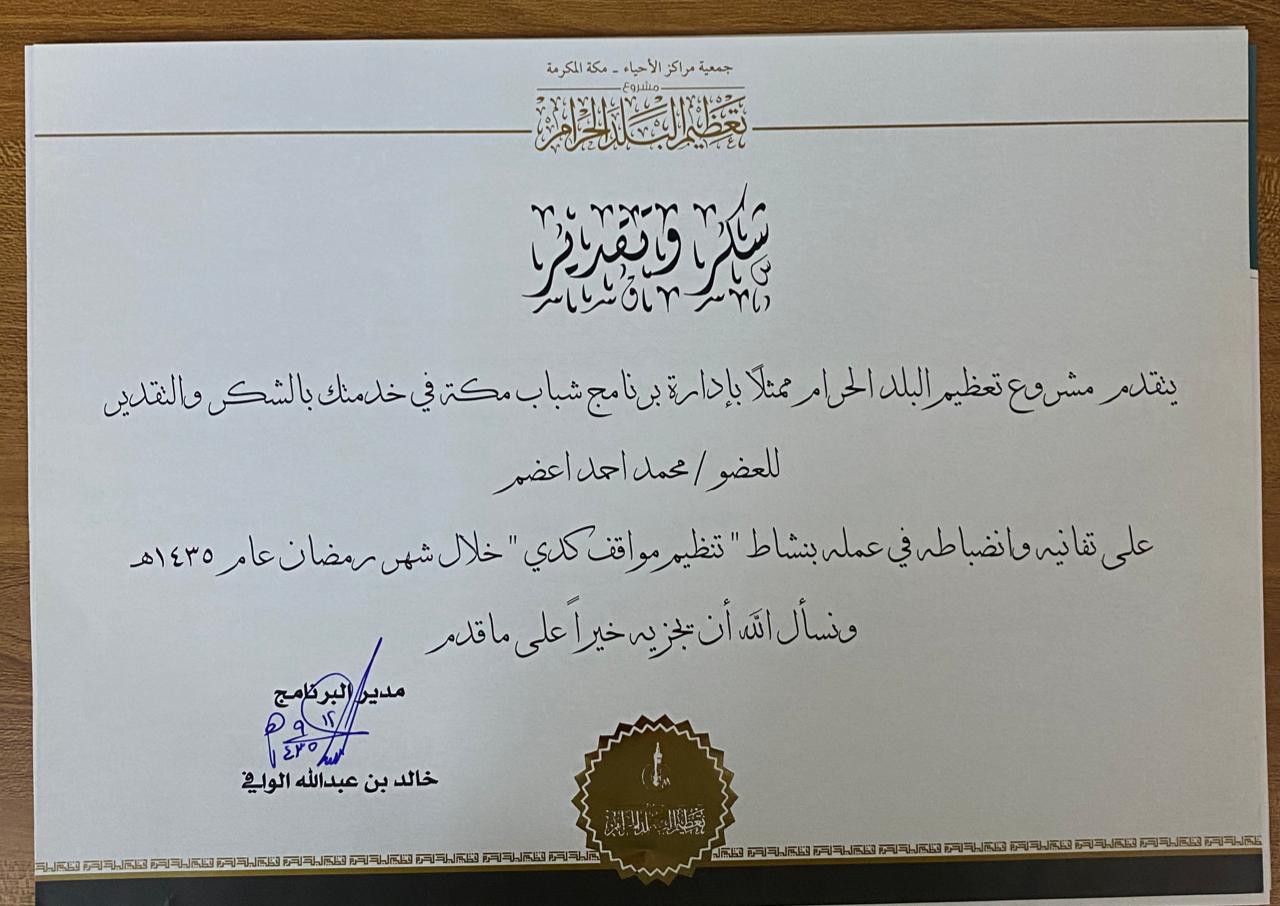 جمعية مراكز الأحياء - مكة المكرمة
مشروع
تعظيم البلد الحرام
شكر وتقدير
يتقدم مشروع تعظيم البلد الحرام ممثلاً بإدارة برنامج شباب مكة في خدمتك بالشكر والتقدير
للعضو / محمد احمد اعضم
على تفانيه وانضباطه في عمله بنشاط " تنظيم مواقف كدي " خلال شهر رمضان عام ١٤٣٥هـ
ونسأل الله أن يجزيه خيراً على ماقدم
مدير البرنامج
خالد بن عبدالله الوافي
تعظيم البلد الحرام